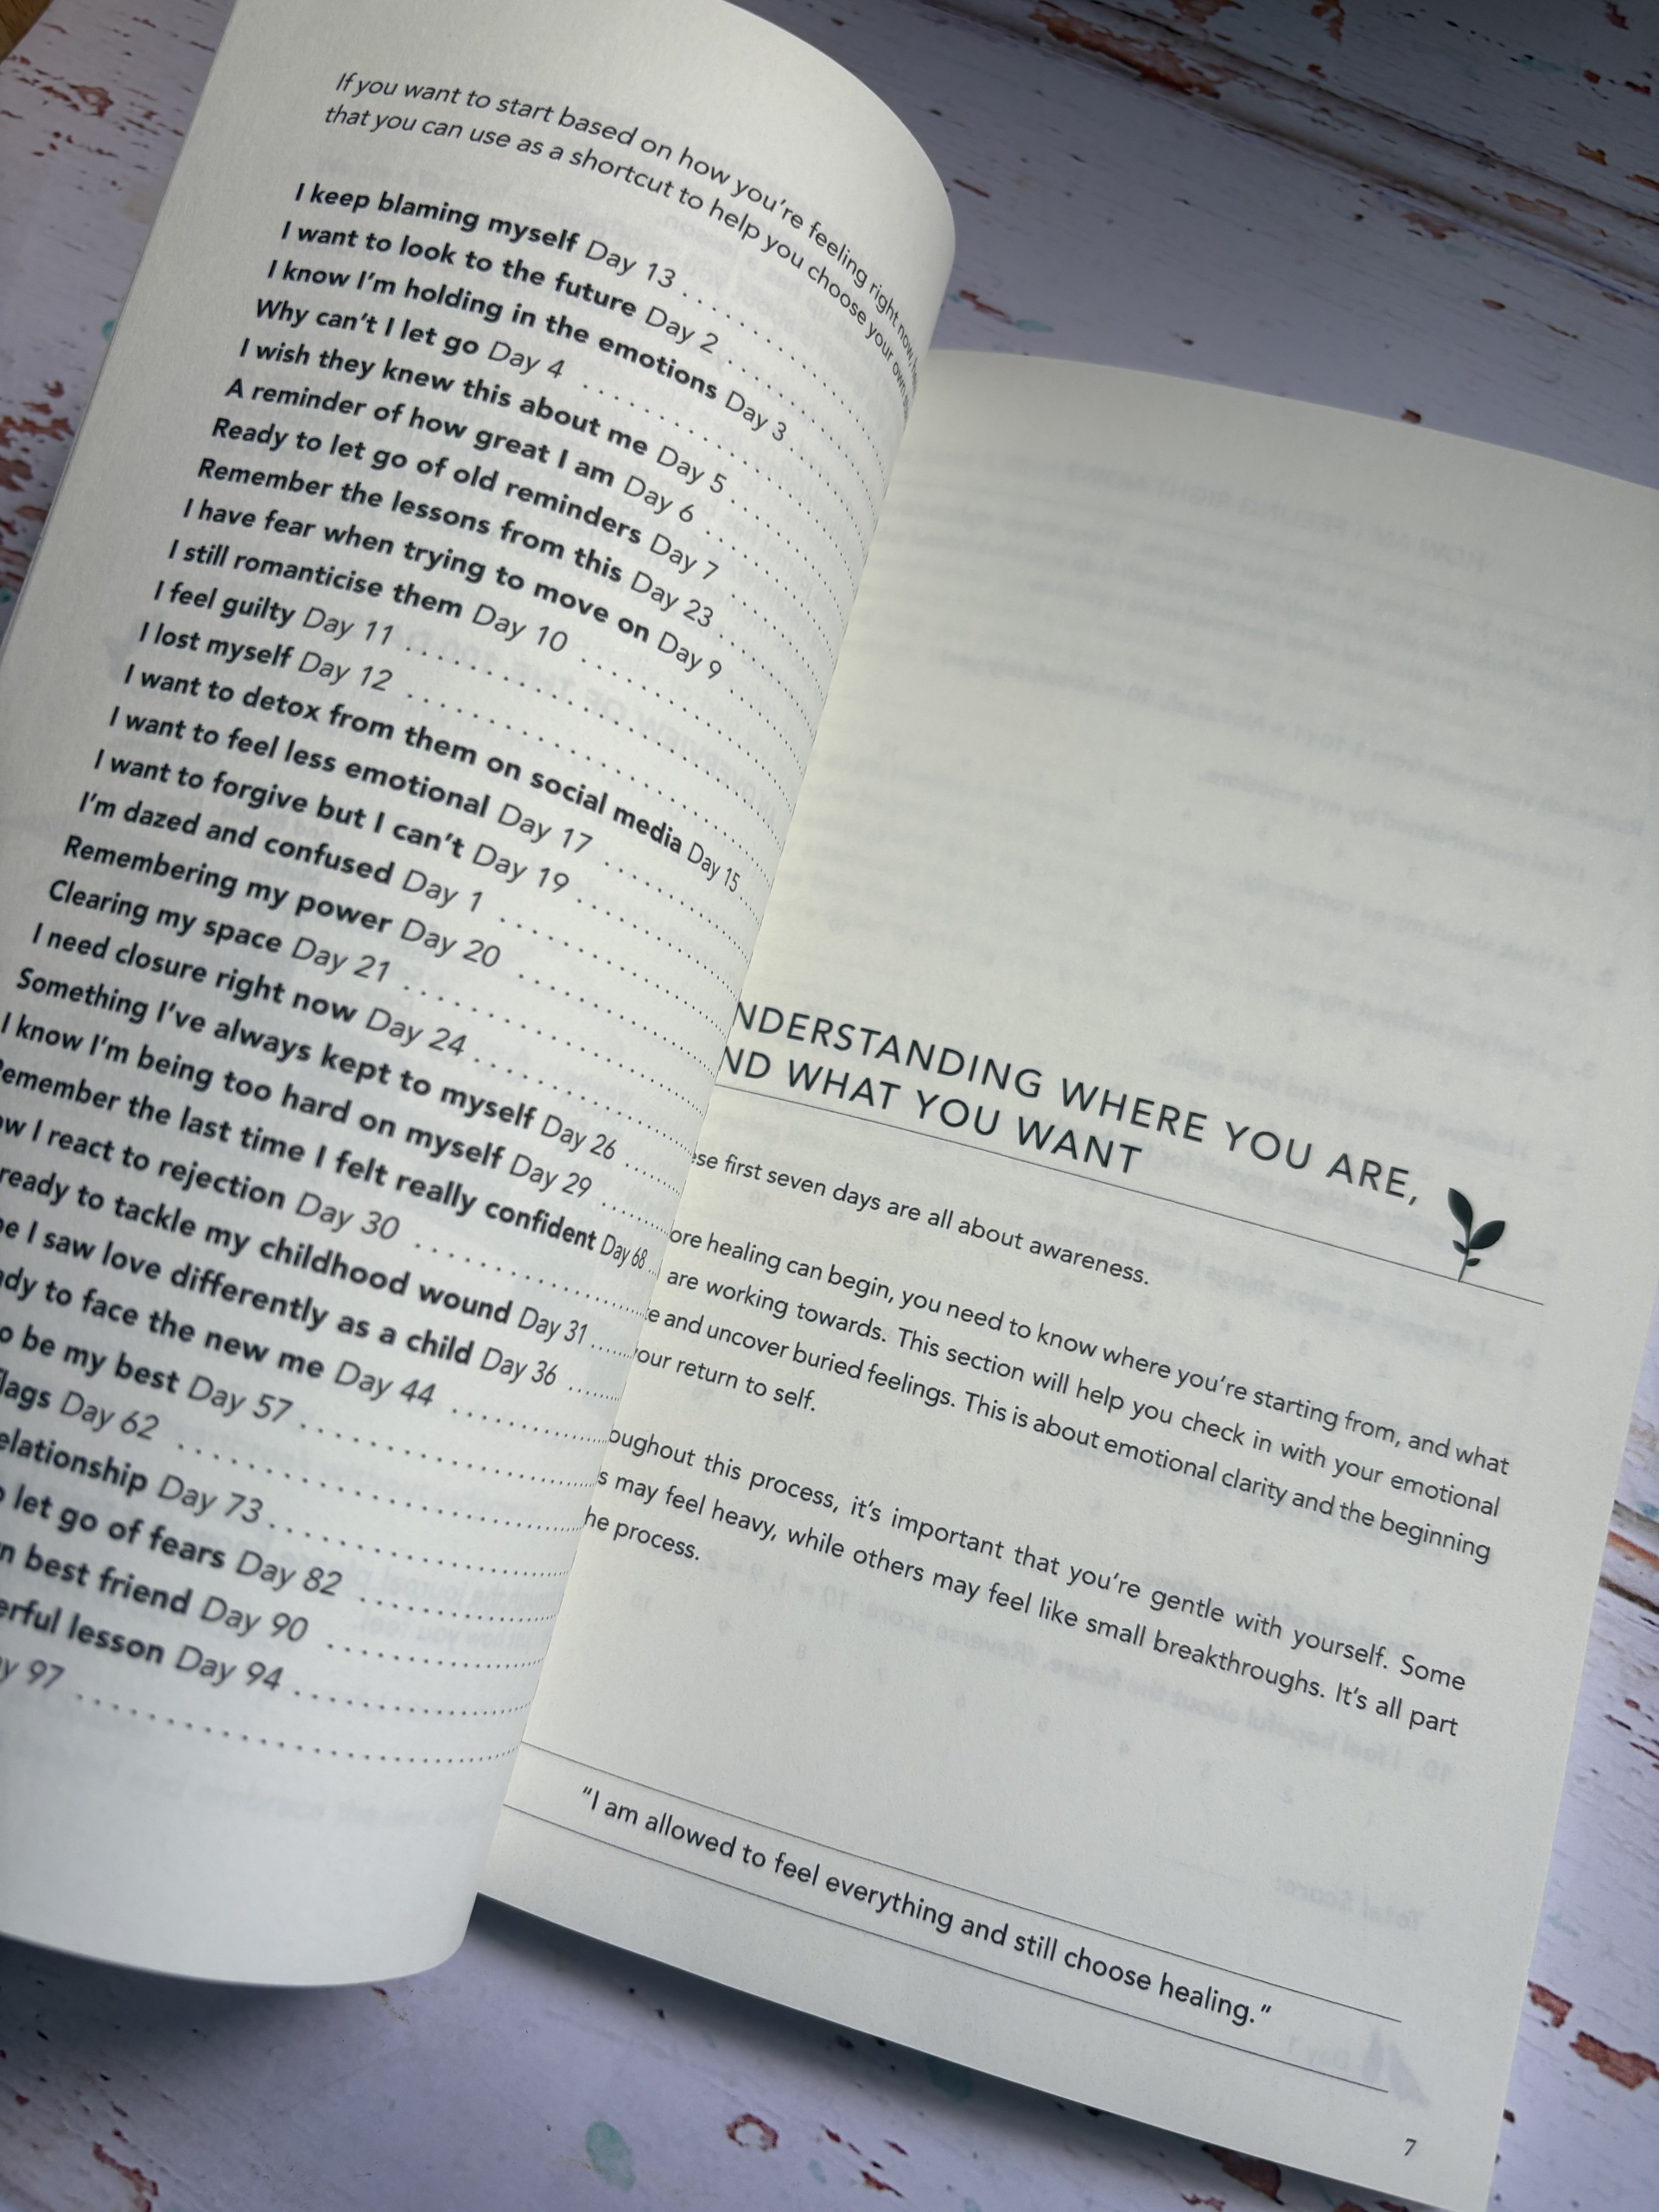 If you want to start based on how you're feeling right now,
that you can use as a shortcut to help you choose your own
I keep blaming myself Day 13 . . . . . . . . . . . . . .
I want to look to the future Day 2 . . . . . . . . . . . .
I know I'm holding in the emotions Day 3 . . . . . . . . .
Why can't I let go Day 4 . . . . . . . . . . . . . . . . .
I wish they knew this about me Day 5 . . . . . . . . . . .
A reminder of how great I am Day 6 . . . . . . . . . . . .
Ready to let go of old reminders Day 7 . . . . . . . . . .
Remember the lessons from this Day 23 . . . . . . . . . .
I have fear when trying to move on Day 9 . . . . . . . . .
I still romanticise them Day 10 . . . . . . . . . . . . .
I feel guilty Day 11 . . . . . . . . . . . . . . . . . . .
I lost myself Day 12 . . . . . . . . . . . . . . . . . . .
I want to detox from them on social media Day 15
I want to feel less emotional Day 17 . . . . . . . . . . .
I want to forgive but I can't Day 19 . . . . . . . . . . .
I'm dazed and confused Day 1 . . . . . . . . . . . . . . .
Remembering my power Day 20 . . . . . . . . . . . . . . .
Clearing my space Day 21 . . . . . . . . . . . . . . . . .
I need closure right now Day 24 . . . . . . . . . . . . .
Something I've always kept to myself Day 26 . . . . . . .
I know I'm being too hard on myself Day 29 . . . . . . . .
Remember the last time I felt really confident Day 68 . . .
ow I react to rejection Day 30 . . . . . . . . . . . . . .
ready to tackle my childhood wound Day 31 . . . . . . . .
I saw love differently as a child Day 36 . . . . . . . .
dy to face the new me Day 44 . . . . . . . . . . . . . . .
o be my best Day 57 . . . . . . . . . . . . . . . . . . .
lags Day 62 . . . . . . . . . . . . . . . . . . . . . . .
elationship Day 73 . . . . . . . . . . . . . . . . . . . .
let go of fears Day 82 . . . . . . . . . . . . . . . . .
n best friend Day 90 . . . . . . . . . . . . . . . . . . .
erful lesson Day 94 . . . . . . . . . . . . . . . . . . .
y 97 . . . . . . . . . . . . . . . . . . . . . . . . . . .
NDERSTANDING WHERE YOU ARE,
ND WHAT YOU WANT
ese first seven days are all about awareness.
ore healing can begin, you need to know where you're starting from, and what
are working towards. This section will help you check in with your emotional
e and uncover buried feelings. This is about emotional clarity and the beginning
our return to self.
oughout this process, it's important that you're gentle with yourself. Some
s may feel heavy, while others may feel like small breakthroughs. It's all part
he process.
"I am allowed to feel everything and still choose healing."
7